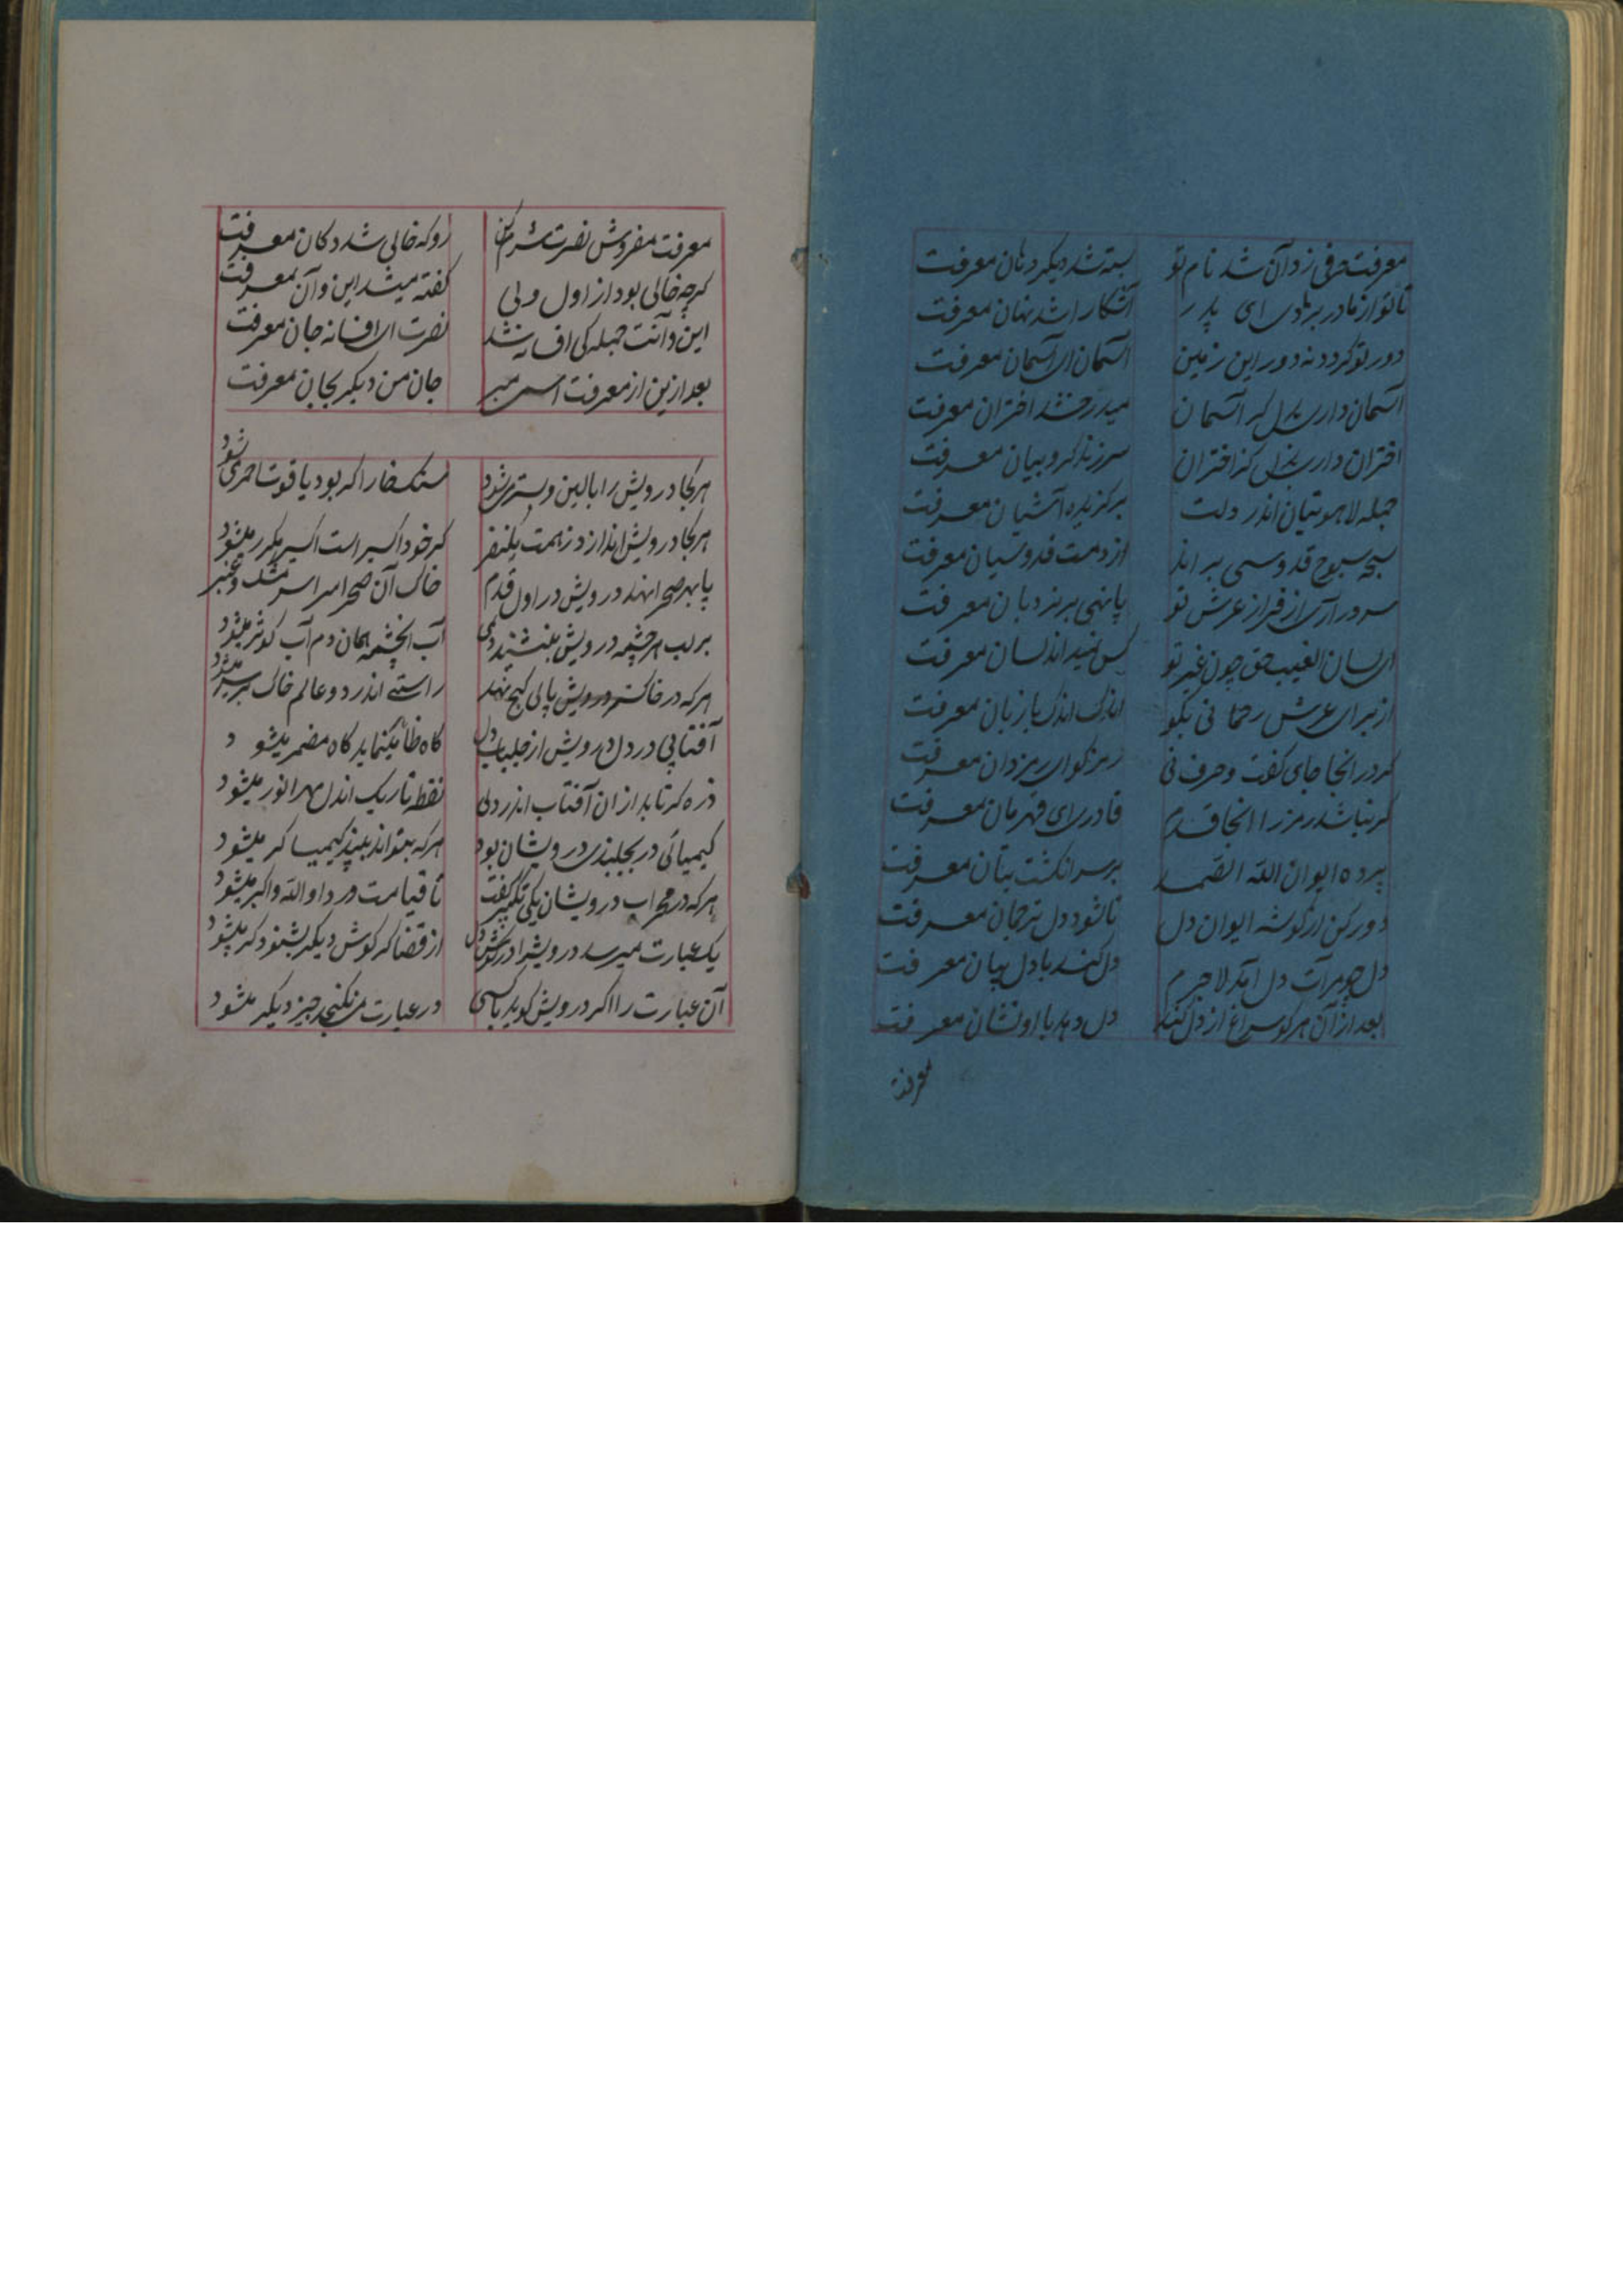 معرفت حرفی زد آن شد نام تو بسته شد دیگر دهان معرفت
تا تو از مادر بزادی ای پدر آشکارا شد نهان معرفت
دور تو گردد نه دور این زمین آسمان ای آسمان معرفت
آسمان داری بدل کز آسمان میدرخشد اختران معرفت
اختران داری کز اختران سر زند کروبیان معرفت
جمله لاهوتیان اندر دلت برگزیده آشیان معرفت
سبحه سبوح قدوسی براند از دمت قدوسیان معرفت
سر در آری از فراز عرش تو پا نهی بر نردبان معرفت
ای لسان الغیب حق چون غیر تو کس اندلسان معرفت
از برای عرش رحمانی بگو اندک اندک با زبان معرفت
گر در آنجا جای گفت و حرف نی رمز گو ای یزدان معرفت
گر نباشد رمز را آنجا قدم قادری ای قهرمان معرفت
پرده ایوان الله الصمد بر سر انگشت بتان معرفت
دور کن از گوشه ایوان دل تا شود دل ترجمان معرفت
دل چو مرآت دل آمد لاجرم دل کند با دل بیان معرفت
بعد از آن هر کو سراغ از دل کند دل دهد با او نشان معرفت
معرفت
معرفت مفروش نصرت شرم کن رو که خالی شد دکان معرفت
گرچه خالی بود از اول ولی گفته میشد این و آن معرفت
این و آنت جمله کی افسانه شد نصرت ای افسانه جان معرفت
بعد ازین از معرفت اسمی مبر جان من دیگر بجان معرفت
هر کجا درویش را بالین و بستر شود سنگ خارا گر بود یاقوت احمر میشود
هر کجا درویش اندازد ز همت یکنظر گر خود اکسیر است اکسیر مکرر میشود
پا بهر صحرا نهد درویش در اول قدم خاک آن صحرا سراسر مشک و عنبر
بر لب هر چشمه درویش بنشیند دمی آب آنچشمه همان دم آب کوثر میشود
هر که در خاک درویش پا کج نهد راستی اندر دو عالم خاک بر سر میشود
آفتابی در دل درویش از جلباب دل گاه ظاهر مینماید گاه مضمر میشود
ذره گر تابد از آن آفتاب اندر دلی نقطه تاریک اندل مهر انور میشود
کیمیائی در درویشان بود هر که بتواند ببیند کیمیاگر میشود
هر که در محراب درویشان یکی تکبیر گفت تا قیامت ورد او الله و اکبر میشود
یک عبارت میرسد درویش را در گوش دل از قضا گر گوش دیگر بشنود کر میشود
آن عبارت را اگر درویش گوید با کسی در عبارت می نگنجد چیز دیگر میشود